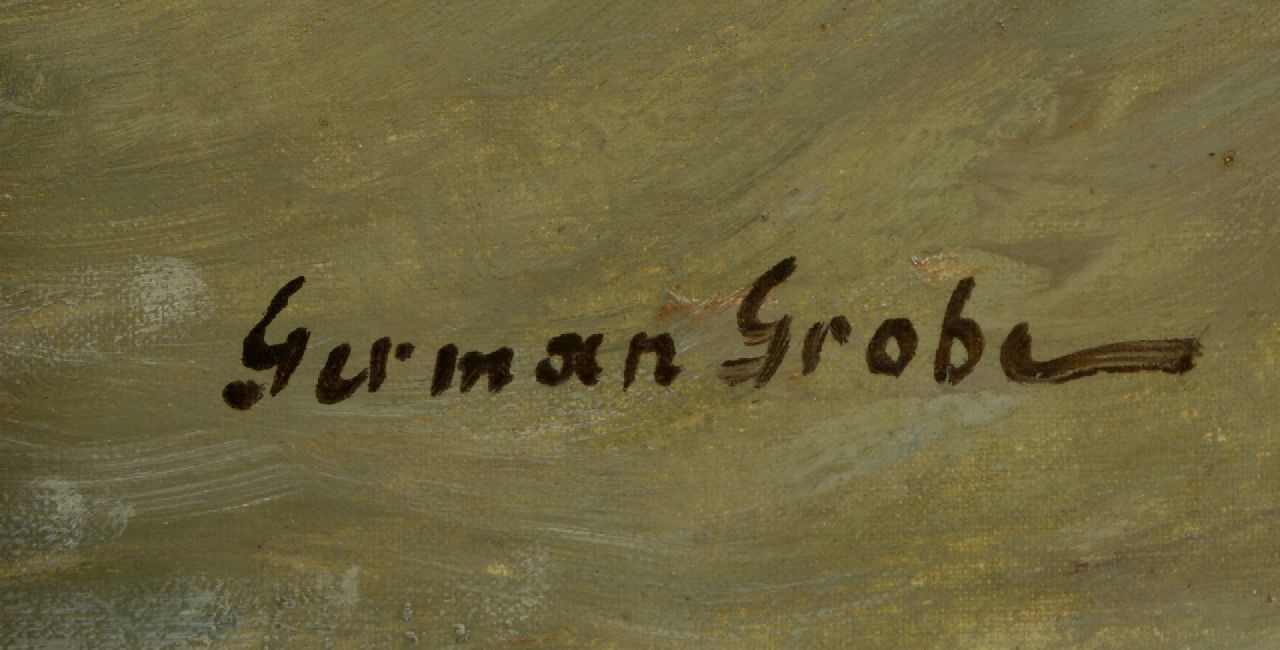 German Grobe